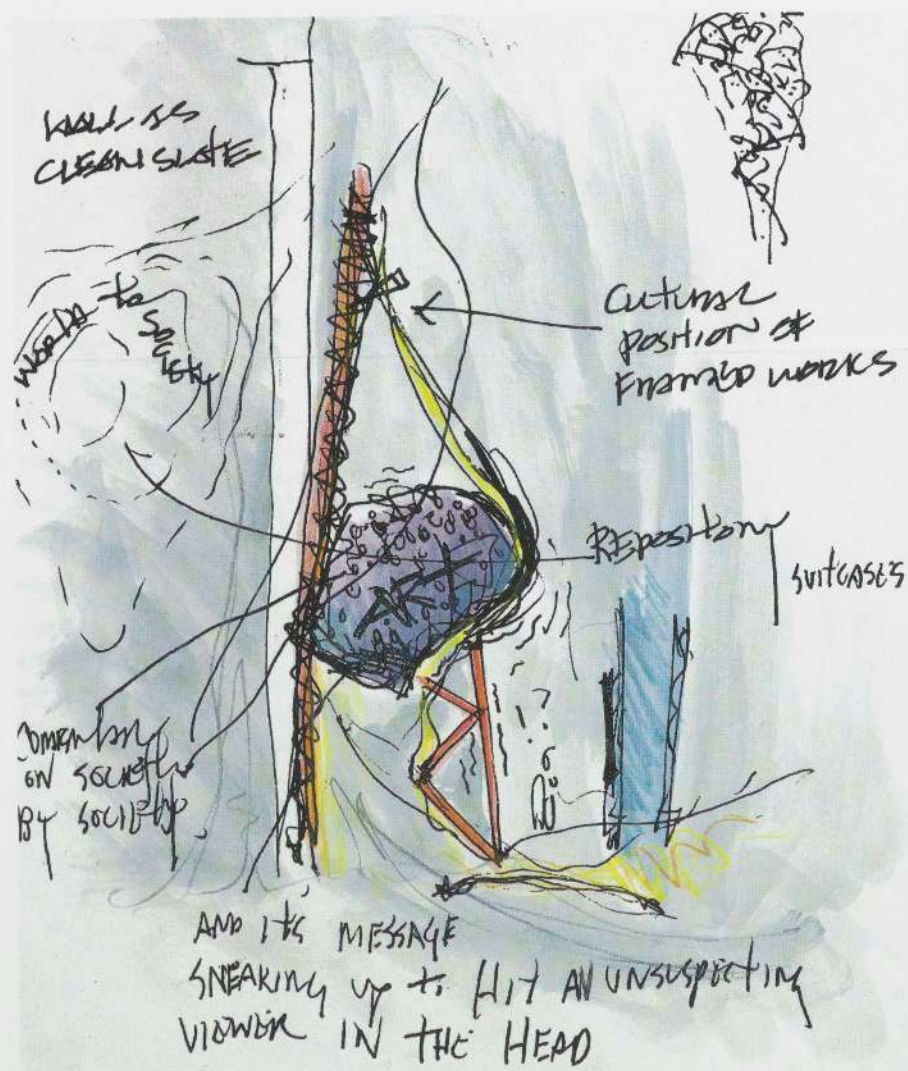 WALL AS
CLEAN SLATE
WORLD to SOCIETY
CULTURAL
POSITION OF
FRAMED WORKS
ART
REPOSITORY
SUITCASES
!?
ON SOCIETY
BY SOCIETY
AND IT'S MESSAGE
SNEAKING UP to HIT AN UNSUSPECTING
VIEWER IN THE HEAD